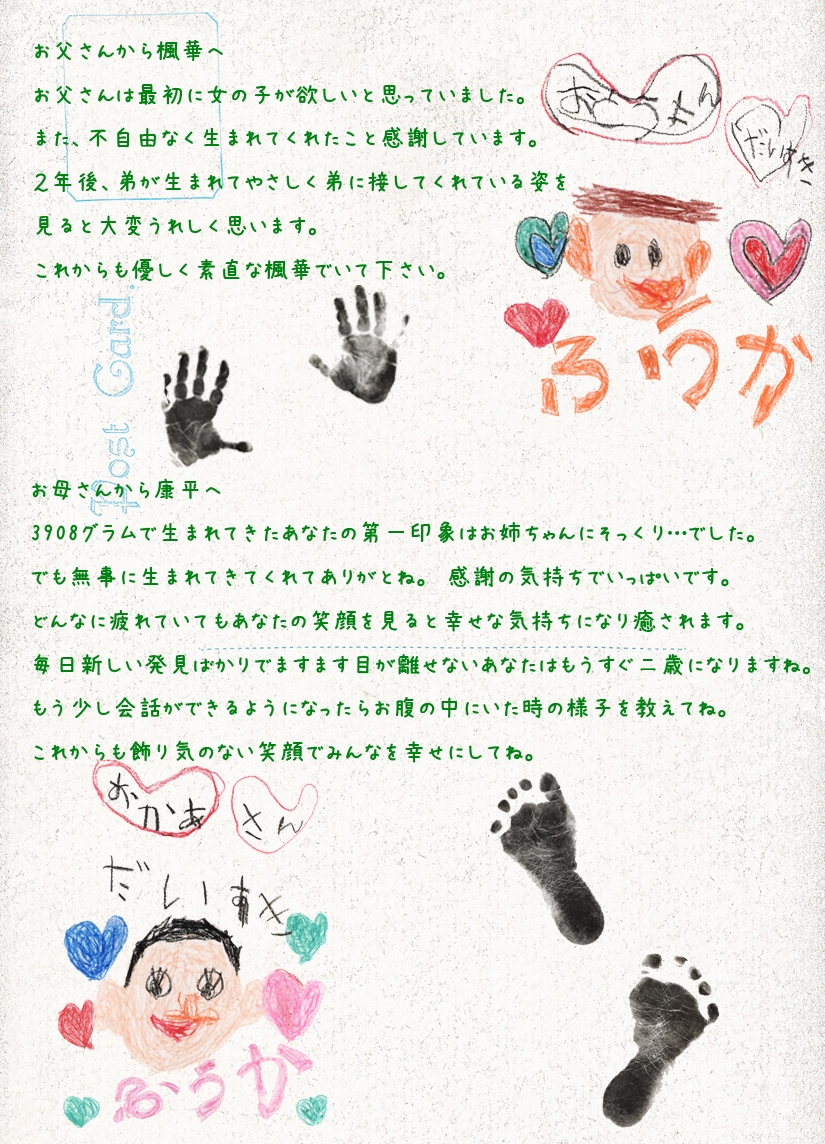 お父さんから楓華へ
お父さんは最初に女の子が欲しいと思っていました。
また、不自由なく生まれてくれたこと感謝しています。
２年後、弟が生まれてやさしく弟に接してくれている姿を
見ると大変うれしく思います。
これからも優しく素直な楓華でいて下さい。
おとうさん
だいすき
ふうか
Post Card.
お母さんから康平へ
3908グラムで生まれてきたあなたの第一印象はお姉ちゃんにそっくり…でした。
でも無事に生まれてきてくれてありがとね。 感謝の気持ちでいっぱいです。
どんなに疲れていてもあなたの笑顔を見ると幸せな気持ちになり癒されます。
毎日新しい発見ばかりでますます目が離せないあなたはもうすぐ二歳になりますね。
もう少し会話ができるようになったらお腹の中にいた時の様子を教えてね。
これからも飾り気のない笑顔でみんなを幸せにしてね。
おかあ
さん
だいすき
ふうか